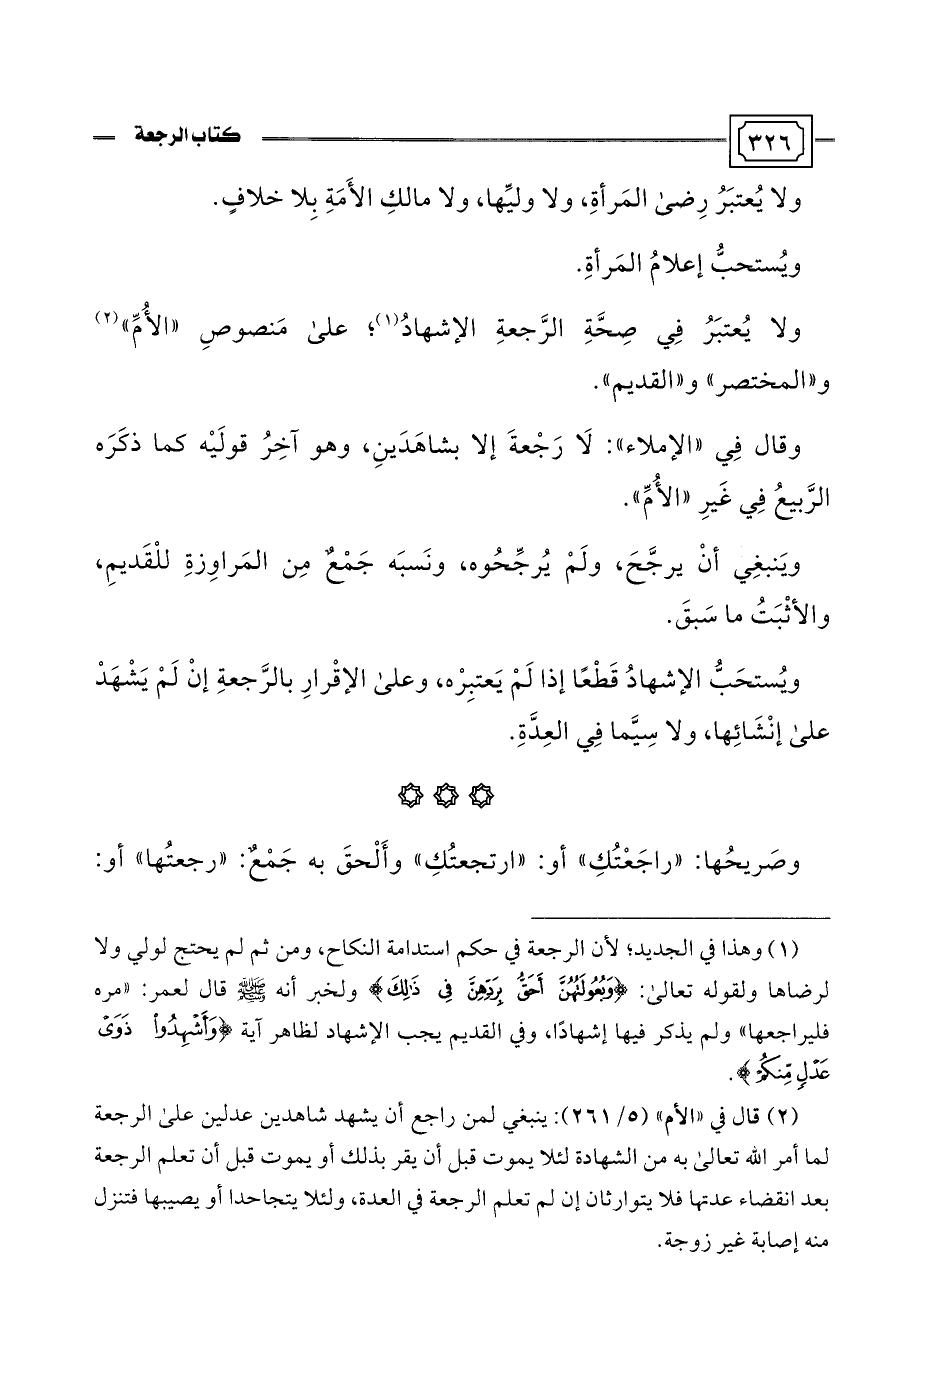 ٣٢٦ كتاب الرجعة
ولا يُعتبَرُ رِضىٰ المَرأةِ، ولا وليِّها، ولا مالكِ الأَمَةِ بِلا خلافٍ.
ويُستحبُّ إعلامُ المَرأةِ.
ولا يُعتبَرُ فِي صِحَّةِ الرَّجعةِ الإشهادُ(١)؛ علىٰ مَنصوصِ «الأُمِّ»(٢)
و«المختصر» و«القديم».
وقال فِي «الإملاء»: لَا رَجْعةَ إلا بشاهَدَينِ، وهو آخِرُ قوليْه كما ذكَرَه
الرَّبيعُ فِي غَيرِ «الأُمِّ».
ويَنبغِي أنْ يرجَّحَ، ولَمْ يُرجِّحُوه، ونَسبَه جَمْعٌ مِن المَراوِزةِ للْقَديمِ،
والأثْبَتُ ما سَبقَ.
ويُستحَبُّ الإشهادُ قَطْعًا إذا لَمْ يَعتبِرْه، وعلىٰ الإقْرارِ بالرَّجعةِ إنْ لَمْ يَشْهَدْ
علىٰ إنْشَائِها، ولا سِيَّما فِي العِدَّةِ.
وصَريحُها: «راجَعْتُكِ» أو: «ارتجعتُكِ» وأَلْحقَ به جَمْعٌ: «رجعتُها» أو:
(١) وهذا في الجديد؛ لأن الرجعة في حكم استدامة النكاح، ومن ثم لم يحتج لولي ولا
لرضاها ولقوله تعالىٰ: ﴿وَبُعُولَتُهُنَّ أَحَقُّ بِرَدِّهِنَّ فِي ذَٰلِكَ﴾ ولخبر أنه ﷺ قال لعمر: «مره
فليراجعها» ولم يذكر فيها إشهادًا، وفي القديم يجب الإشهاد لظاهر آية ﴿وَأَشْهِدُوا۟ ذَوَىْ
عَدْلٍ مِّنكُمْ﴾.
(٢) قال في «الأم» (٥/ ٢٦١): ينبغي لمن راجع أن يشهد شاهدين عدلين علىٰ الرجعة
لما أمر الله تعالىٰ به من الشهادة لئلا يموت قبل أن يقر بذلك أو يموت قبل أن تعلم الرجعة
بعد انقضاء عدتها فلا يتوارثان إن لم تعلم الرجعة في العدة، ولئلا يتجاحدا أو يصيبها فتنزل
منه إصابة غير زوجة.